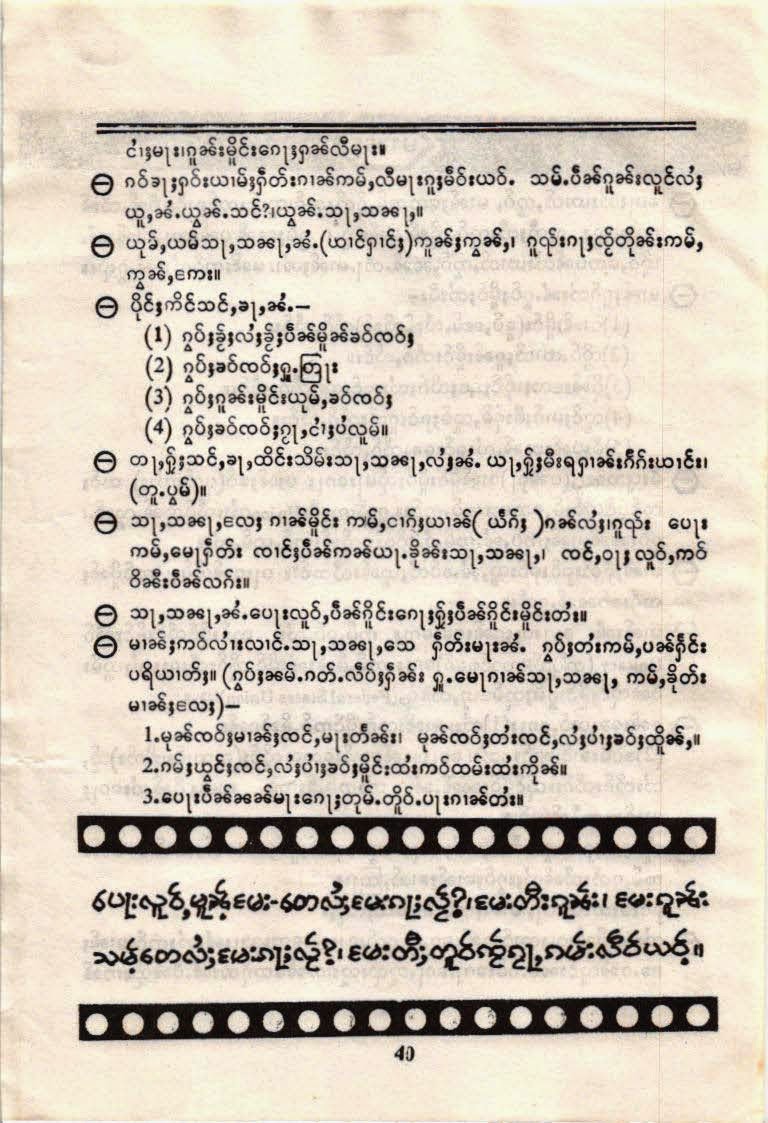 ငၢႆႈမႃး၊ၵူၼ်းမိူင်းၵေႃႈႁၼ်လီမႃး။
⊖ ၵဝ်ၶႃႈႁဝ်းယၢမ်ႈႁဵတ်းၵၢၼ်ၵမ်,လီမႃးၵူႈမဵဝ်းယဝ်. သမ်.ပဵၼ်ၵူၼ်းလူင်လႆႈ
ယူ,ၼႆ.ယွၼ်.သင်?၊ယွၼ်.သႃ,သၼႃ,။
⊖ ယုၶ်,ယမ်သႃ,သၼႃ,ၼႆ.(ယၢင်ႁၢင်ႈ)ၸူၼ်ႈၸွၼ်,၊ ၵူၺ်းၵႃႈၸႂ်တိုၼ်းၵမ်,
ၸွၼ်,ၸႄး။
⊖ ပိုင်ႈဢိင်သင်,ၶႃ,ၼႆ.—
(1) ၵွပ်ႈၶႂ်ႈလႆႈၶႂ်ႈပဵၼ်မိူၼ်ၶဝ်ၸဝ်ႈ
(2) ၵွပ်ႈၶဝ်ၸဝ်ႈႁူ.တြႃး
(3) ၵွပ်ႈၵူၼ်းမိူင်းယုမ်,ၶဝ်ၸဝ်ႈ
(4) ၵွပ်ႈၶဝ်ၸဝ်ႈၵႂႃ,ငၢႆႈပႆလူမ်။
⊖ တႃ,ႁႂ်ႈသင်,ၶႃ,ထိင်းသိမ်းသႃ,သၼႃ,လႆႈၼႆ. ယႃ,ႁႂ်ႈမီးရႁၢၼ်းၵဵၵ်းယၢင်း၊
(တူ.ပွမ်)။
⊖ သႃ,သၼႃ,လႄႈ ၵၢၼ်မိူင်း ၵမ်,ငၢၵ်ႈယၢၼ်(ယႅၵ်ႈ)ၵၼ်လႆႈ၊ၵူၺ်း ပေႃး
ၵမ်,မေႃႁဵတ်း ၸၢင်ႈပဵၼ်ၵၼ်ယႃ.ၶိုၼ်းသႃ,သၼႃ,၊ ၸင်,ဝႃႈ လူဝ်,ဢဝ်
ဝိၼီးပဵၼ်လၵ်း။
⊖ သႃ,သၼႃ,ၼႆ.ပေႃးလူဝ်,ပဵၼ်ႁိူင်းၵေႃႈႁႂ်ႈပဵၼ်ႁိူင်းမိူင်းတႆး။
⊖ မၢၼ်ႈဢဝ်လၢႆးလၢင်.သႃ,သၼႃ,သေ ႁဵတ်းမႃးၼႆ. ၵွပ်ႈတႆးၵမ်,ပၼ်ႁႅင်း
ပရိယၢတ်ႈ။ (ၵွပ်ႈၼမ်.ၵတ်.လဵပ်ႈႁဵၼ်း ႁူ.မေႃၵၢၼ်သႃ,သၼႃ, ၵမ်,ၶိုတ်း
မၢၼ်ႈလႄႈ)—
1.မုၼ်ၸဝ်ႈမၢၼ်ႈၸင်,မႃးတႅၼ်း၊ မုၼ်ၸဝ်ႈတႆးၸင်,လႆႈပၢႆႈၶဝ်ႈထိူၼ်,။
2.ၵမ်ႈယွင်ႈၸင်,လႆႈပၢႆႈၶဝ်ႈမိူင်းထႆးဢဝ်ထမ်းထႆးဢိုၼ်။
3.ပေႃးပဵၼ်ၼၼ်မႃးၵေႃႈတုမ်.တိူဝ်.ပႃးၵၢၼ်တႆး။
ပေႃးလူဝ်,မူၼ်.မႄး-တေလႆႈမႄးၵႃးလႂ်?၊မႄးတီးၵူၼ်း၊ မႄးၵူၼ်း
သမ်.တေလႆႈမႄးၵႃးလႂ်?၊ မႄးတီႈတူဝ်ၸႂ်ၵႂႃ,ၵမ်းလဵဝ်ယဝ်.။
40